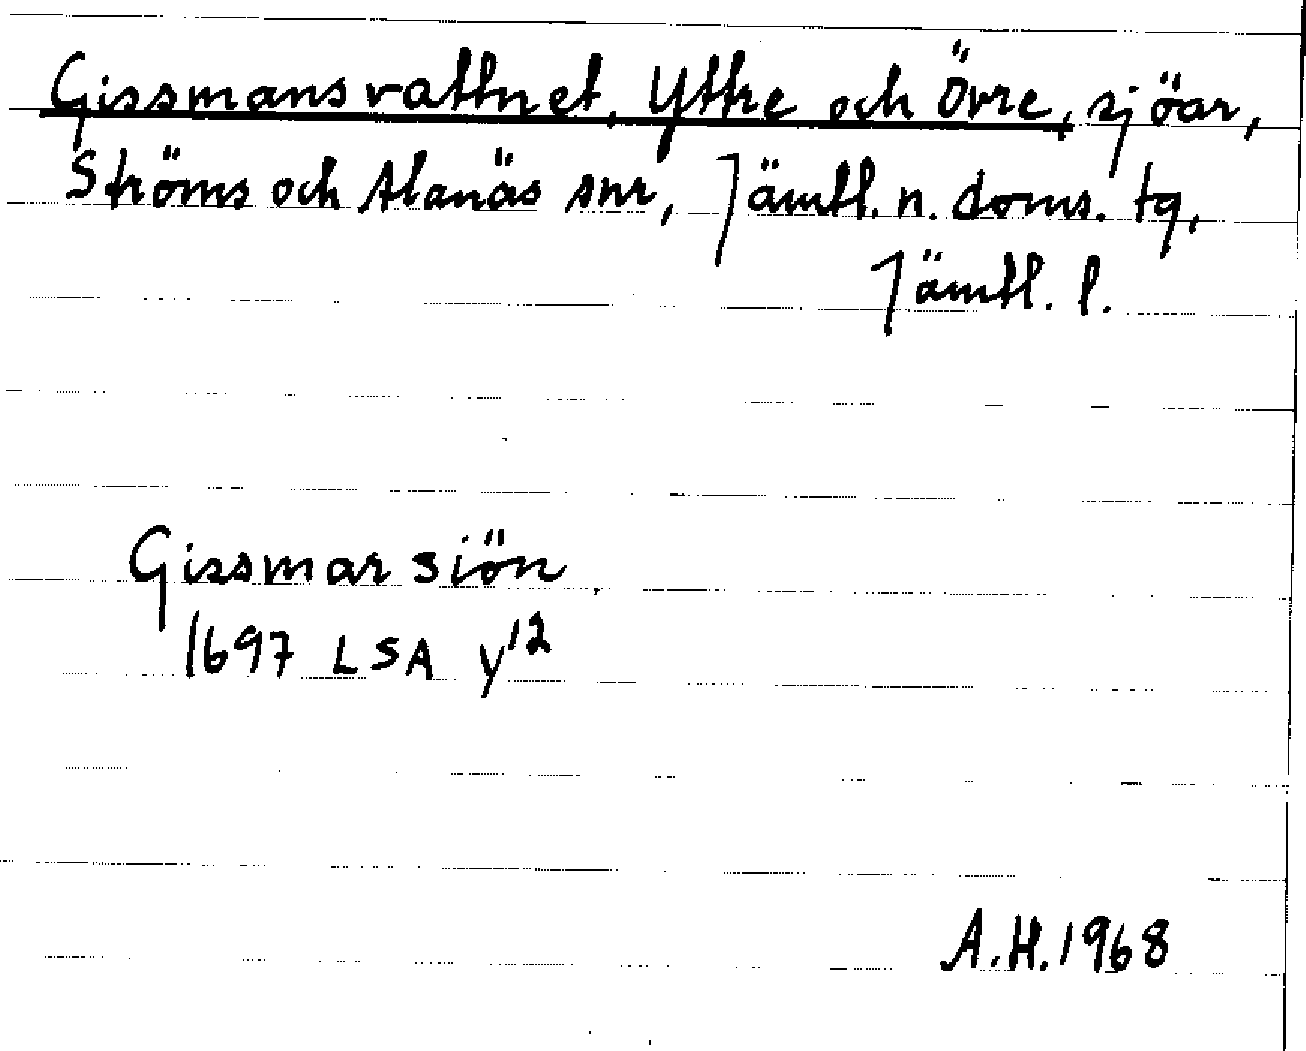 Gissmansvattnet, Yttre och Övre, sjöar,
Ströms och Alanäs snr, Jämtl. n. doms. tg,
Jämtl. l.
Gissmar siön
1697 LSA y12
A.H. 1968